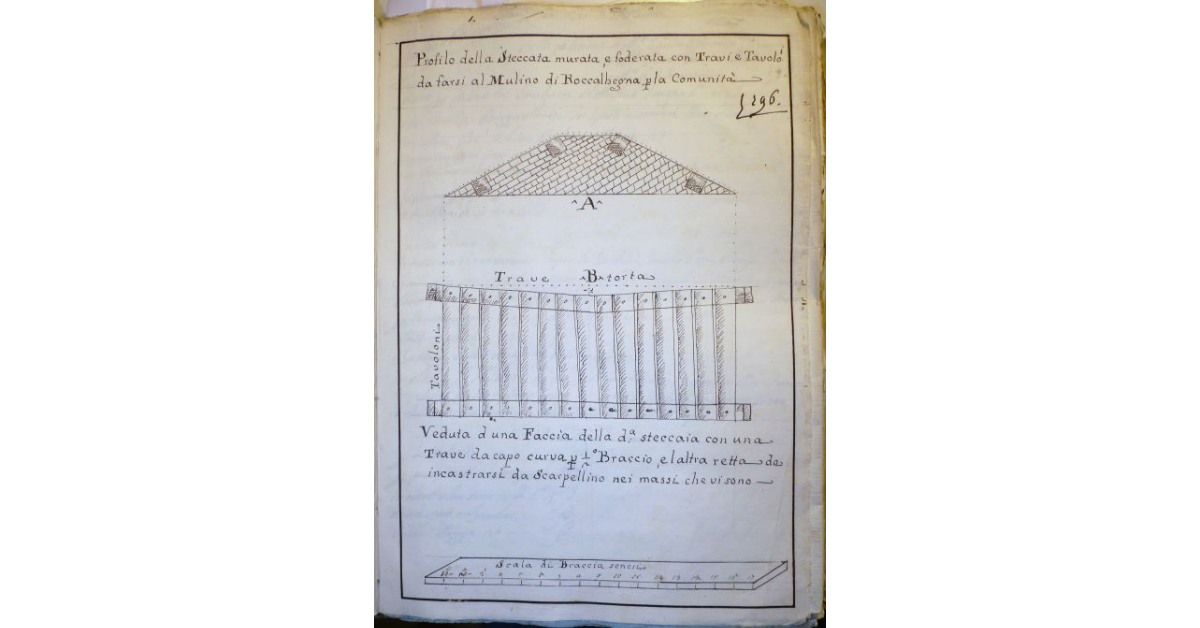 Profilo della Steccata murata, e foderata con Travi e Tavoloi
da farsi al Mulino di Roccalbegna p la Comunità
296.
^A^
Trave ^B^ torta
Tavoloni
Veduta d una Faccia della dª steccaia con una
Trave da capo curva p 1º Braccio, e l altra retta da
incastrarsi da Scarpellino nei massi che vi sono
Scala di Braccia senesi